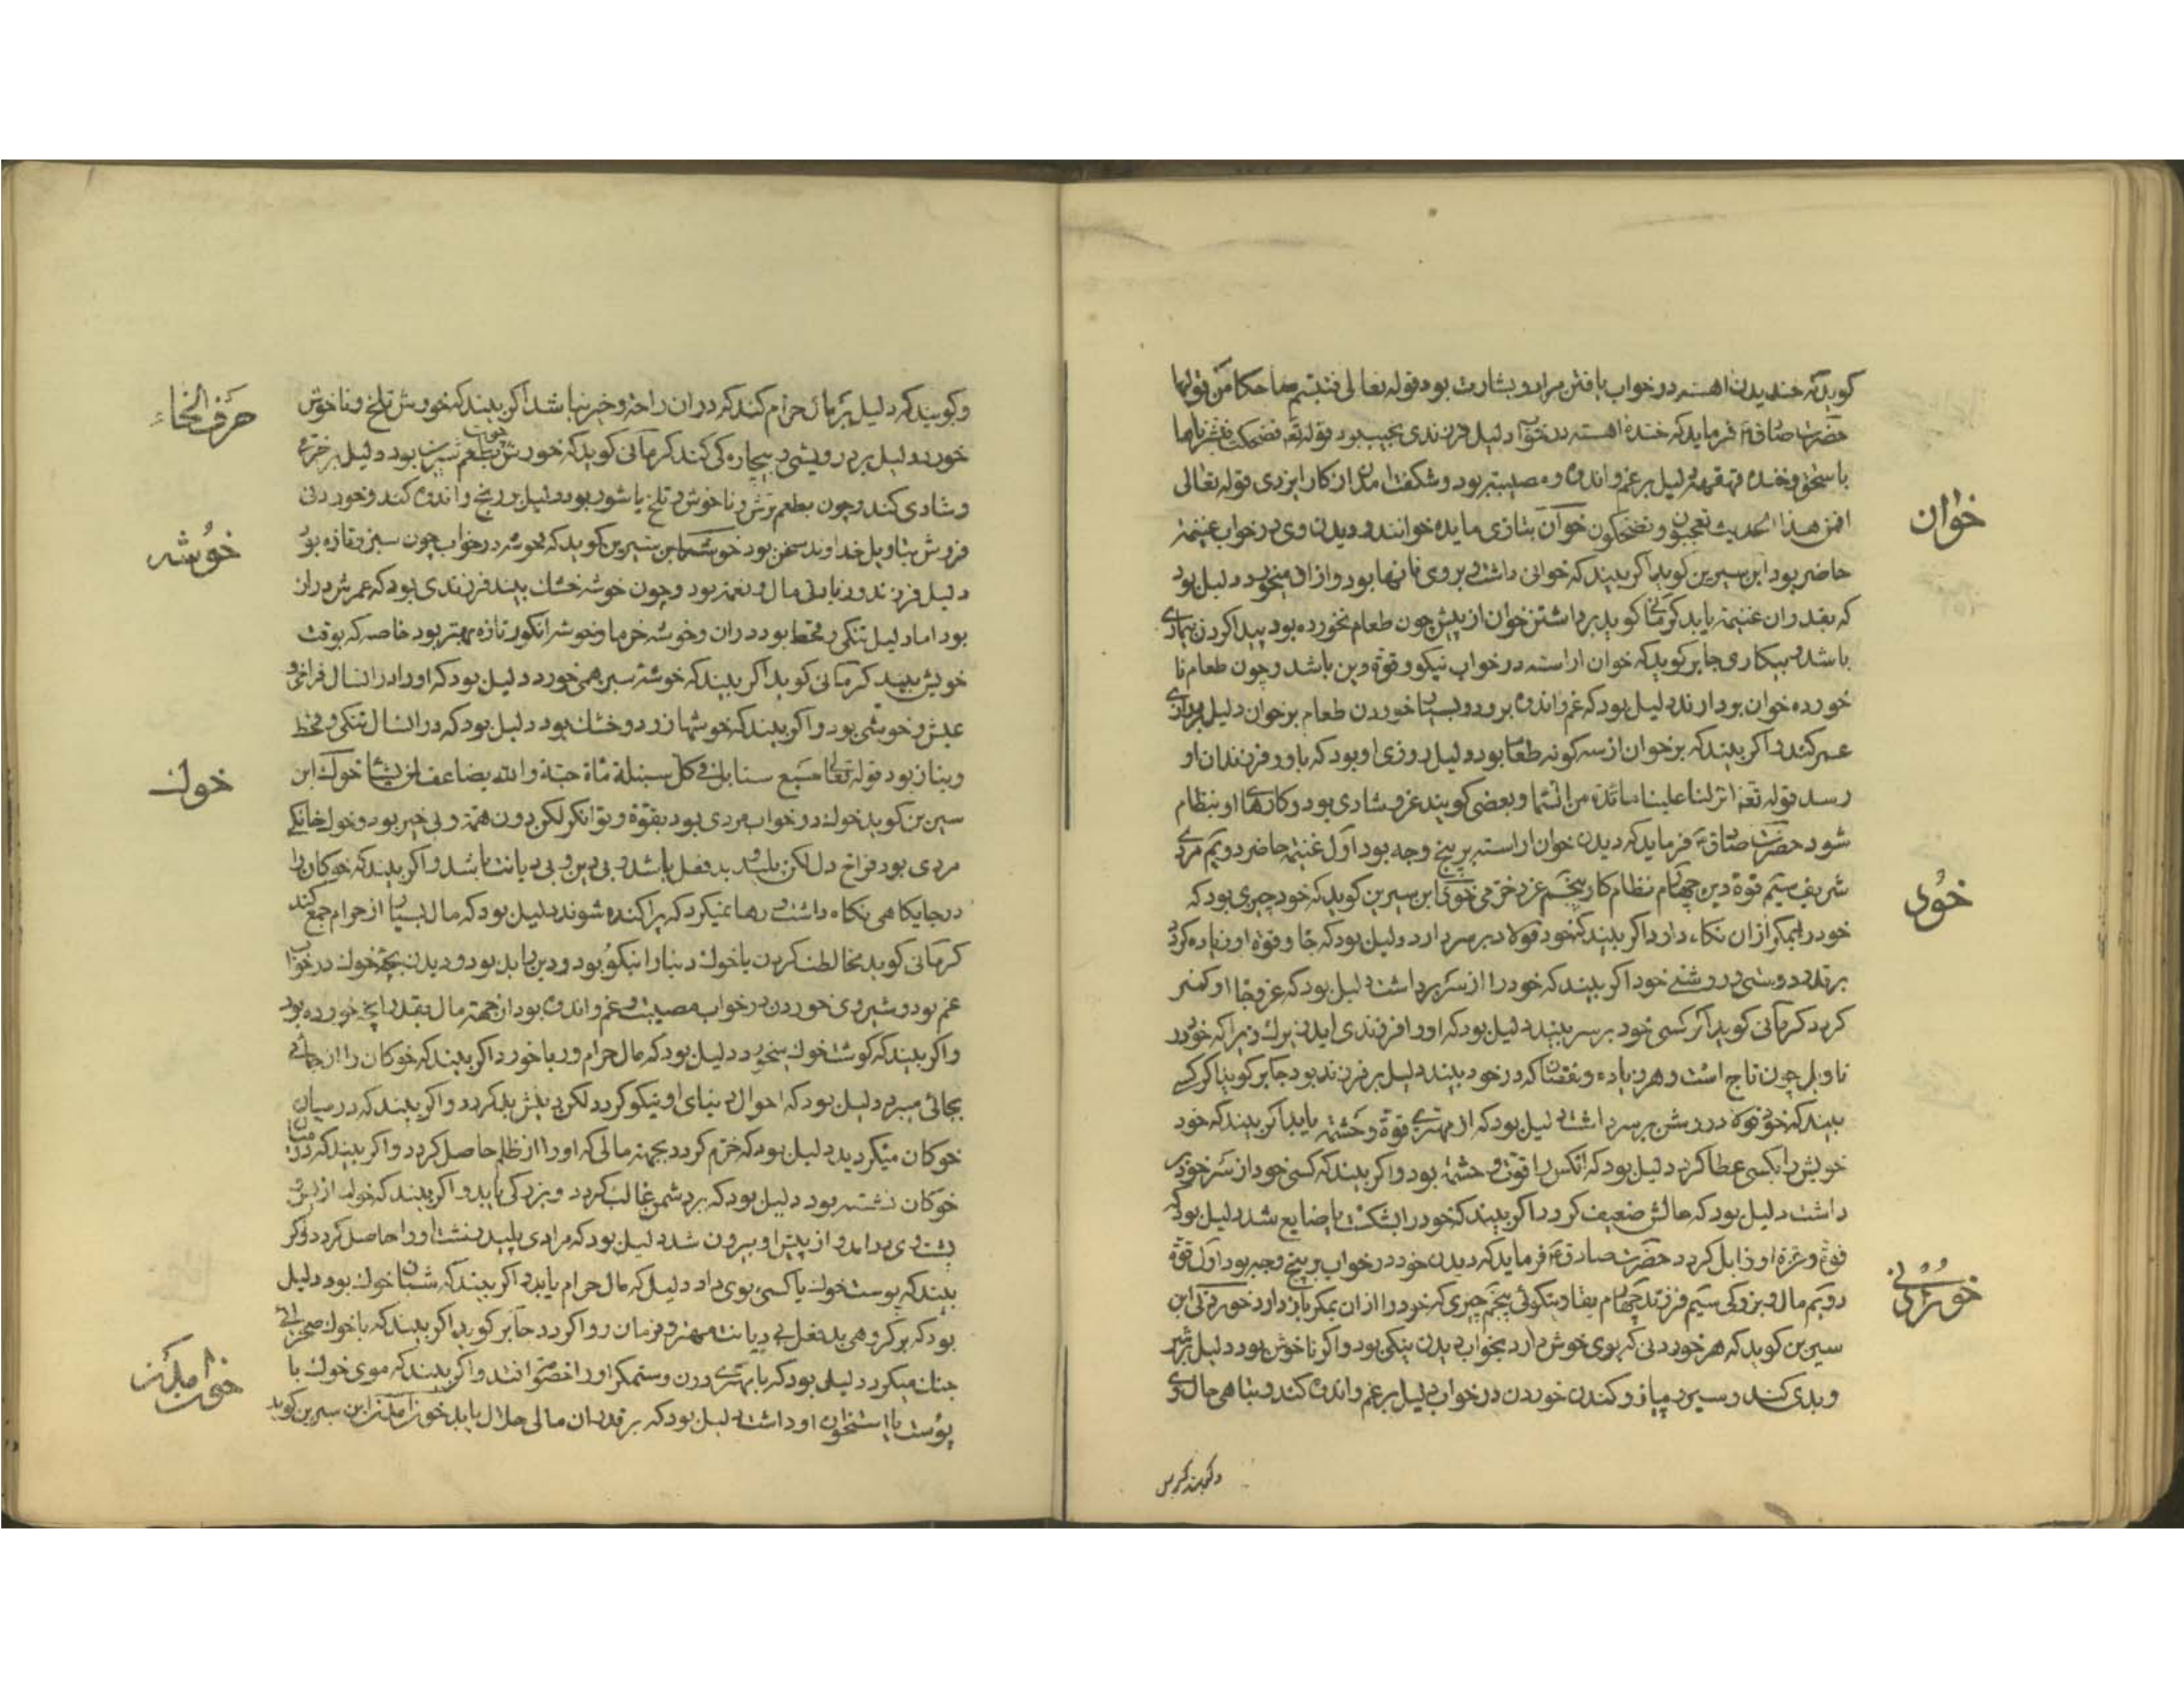 گوید که خندیدن اهسته در خواب یافتن مراد و بشارت بود قوله تعالی فتبسم ضاحکا من قولها
حضرت صادق فرماید که خنده اهسته در خواب دلیل فرزندی نجیب بود قوله تعه فضحکت فبشرناها
باسحق و خنده قهقهه دلیل بر غم و اندوه و مصیبت بود و شگفت از کار ایزدی قوله تعالی
افمن هذا الحدیث تعجبون و تضحکون خوان بتازی مایده خوانند و دیدن وی در خواب غنیمة
خوان
حاضر بود ابن سیرین گوید اگر بیند که خوانی داشت و بر وی نانها بود و از ان میخورد دلیل بود
که بقدر ان غنیمة یابد کرمانی گوید برداشتن خوان از پیش چون طعام نخورده بود پیدا کردن
باشد و بیکاری جابر گوید که خوان اراسته در خواب نیکو و قوة دین باشد و چون طعام نا
خورده خوان بردارند دلیل بود که غم و اندوه بر وی و بسیار خوردن طعام بر خوان دلیل
عمر کند و اگر بیند که بر خوان از سه کونه طعام بود دلیل روزی او بود که باو و فرزندان او
رسد قوله تعه انزل علینا مائدة من السماء و بعضی گویند عز و شادی بود و کارهاء او بنظام
شود حضرت صادق فرماید که دیدن خوان اراسته بر پنج وجه بود اول غنیمة حاضر دویم مردی
شریف سیم قوة دین چهارم نظام کار پنجم عز و خرمی خوی ابن سیرین گوید که خود چیزی بود که
خوی
خود را بمکر از ان نگاه دارد و اگر بیند که خود فولاد بر سر دارد دلیل بود که جاه و قوة او زیاده گردد
بر قدر و روشنی خود اگر بیند که خود را از سر برداشت دلیل بود که عز و جاه او کمتر
گردد کرمانی گوید اگر کسی خود بر سر بیند دلیل بود که او را فرزندی اید زیرا که خود در
تاویل چون تاج است و هر زیاده و نقصان که در خود بیند دلیل بر فرزند بود جابر گوید اگر کسی
بیند که خود فولاد روشن بر سر داشت دلیل بود که از مهتری قوة و حشمة یابد اگر بیند که خود
خویش را بکسی عطا کرد دلیل بود که انکس را قوت و حشمة بود و اگر بیند که کسی خود از سر خود بر
داشت دلیل بود که حالش ضعیف گردد اگر بیند که خود را بشکست یا ضایع شد دلیل بود که
قوة و عزة او زایل گردد حضرت صادق فرماید که دیدن خود در خواب بر پنج وجه بود اول قوة
دویم مال و بزرگی سیم فرزند چهارم بقا و نیکوئی پنجم چیزی که خود را از ان بمکر باز دارد خوردنی ابن
خوردنی
سیرین گوید که هر خوردنی که بوی خوش دارد بخواب دیدن نیکی بود و اگر ناخوش بود دلیل بر شر
و بدی کند و سیر و پیاز و کندن خوردن در خواب دلیل بر غم و اندوه کند و تباهی حال وی
حرف الخاء
و گویند که دلیل بر مال حرام کند که در ان راحة و خیر نباشد اگر بیند که خورش تلخ و ناخوش
خورد دلیل بر درویشی و بیچارگی کند کرمانی گوید که خورش بطعم شیرین بود دلیل بر خرمی
و شادی کند و چون بطعم ترش و ناخوش و تلخ یا شور بود دلیل بر رنج و اندوه کند و خوردنی
خوشه
فروش بتاویل خداوند سخن بود خوشه ابن سیرین گوید که خوشه در خواب چون سبز و تازه بود
دلیل فرزند و زیادتی مال و نعمة بود و چون خوشه خشک بیند فرزندی بود که عمرش دراز
بود اما دلیل تنگی و قحط بود در ان و خوشه خرما و خوشه انگور تازه بهتر بود خاصه که بوقت
خویش بیند کرمانی گوید اگر بیند که خوشه سبز همی خورد دلیل بود که او را در انسال فراخی و
عیش و خوشی بود و اگر بیند که خوشها زرد و خشک بود دلیل بود که در انسال تنگی و قحط
و نیاز بود قوله تعالی سبع سنابل فی کل سنبلة مأة حبة و الله یضاعف لمن یشاء خوک ابن
خوک
سیرین گوید خوک در خواب مردی بود بقوة و توانگر لکن دون همة و بی خیر بود و خوک خانگی
مردی بود فراخ دل لکن پلید و بد فعل باشد و بی دین و بی دیانت باشد و اگر بیند که خوکان را
در جایگاهی نگاه داشت و رها نمیکرد که پراکنده شوند دلیل بود که مال بسیار از حرام جمع کند
کرمانی گوید مخالطت کردن با خوک دنیا را نیکو بود و دین را بد بود و دیدن بچه خوک در خواب
غم بود و شیر وی خوردن در خواب مصیبت و غم و اندوه بود از جهة مال بقدر انچه خورده بود
و اگر بیند که گوشت خوک میخورد دلیل بود که مال حرام و ربا خورد اگر بیند که خوکان را از جائی
بجائی میبرد دلیل بود که احوال دنیای او نیکو گردد لکن دینش بد گردد و اگر بیند که در میان
خوکان میگردید دلیل بود که خرم گردد بجهة مالی که او را از ظلم حاصل گردد و اگر بیند که در میان
خوکان نشسته بود دلیل بود که بر دشمن غالب گردد و بزرگی یابد و اگر بیند که خوک از پس
پشت وی در امد و از پیش او بیرون شد دلیل بود که مرادی پلید او را حاصل گردد و اگر
بیند که پوست خوک یا کسی بوی داد دلیل که مال حرام یابد و اگر بیند که شبان خوک بود دلیل
بود که بر گروهی بد فعل بی دیانت مهتر و فرمان روا گردد جابر گوید اگر بیند که با خوک صحرائی
جنک میکرد دلیل بود که با مهتری دون و ستمکر او را خصومت افتد و اگر بیند که موی خوک با
پوست یا استخوان او داشت دلیل بود که بر قدر ان مالی حلال یابد ابن سیرین گوید